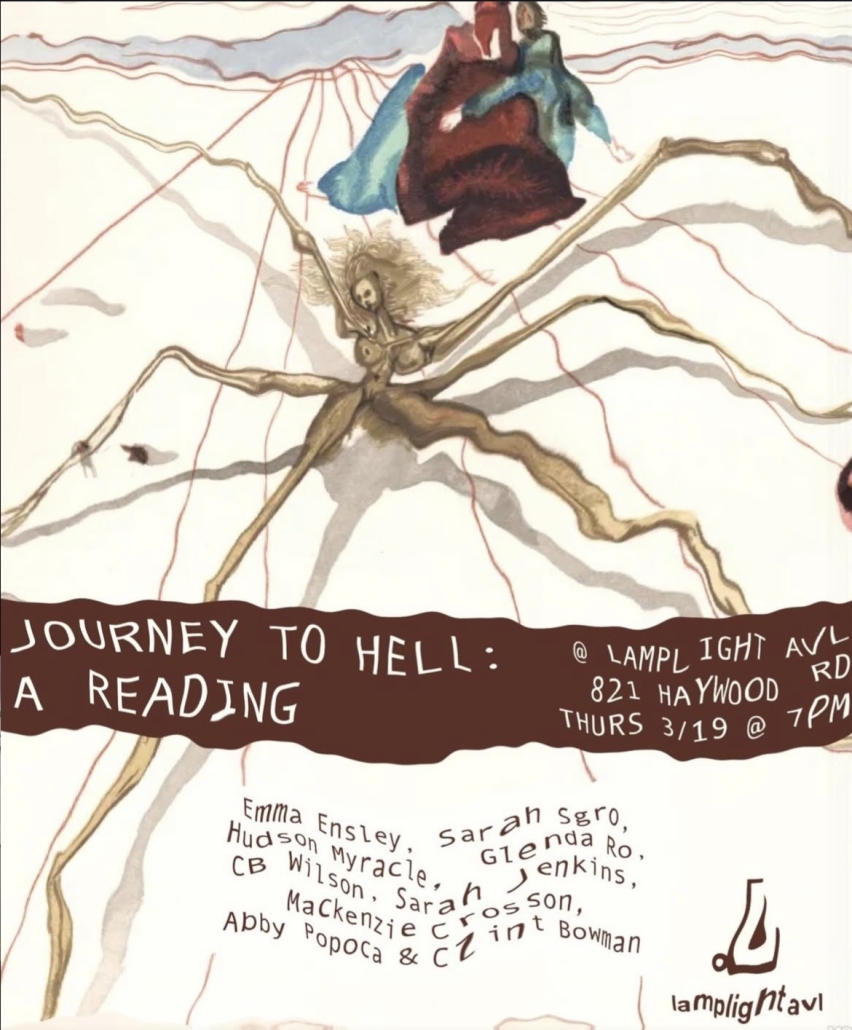 JOURNEY TO HELL:
A READING
@ LAMPLIGHT AVL
821 HAYWOOD RD
THURS 3/19 @ 7PM
Emma Ensley, Sarah Sgro,
Hudson Myracle, Glenda Ro,
CB Wilson, Sarah Jenkins,
Mackenzie Crosson,
Abby Popoca & Clint Bowman
lamplightavl